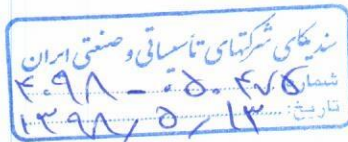 سندیکای شرکتهای تأسیساتی و صنعتی ایران
شماره: ۴۰۹۸ - ۰۵۰۴۷۵
تاریخ: ۱۳۹۸/۵/۱۳